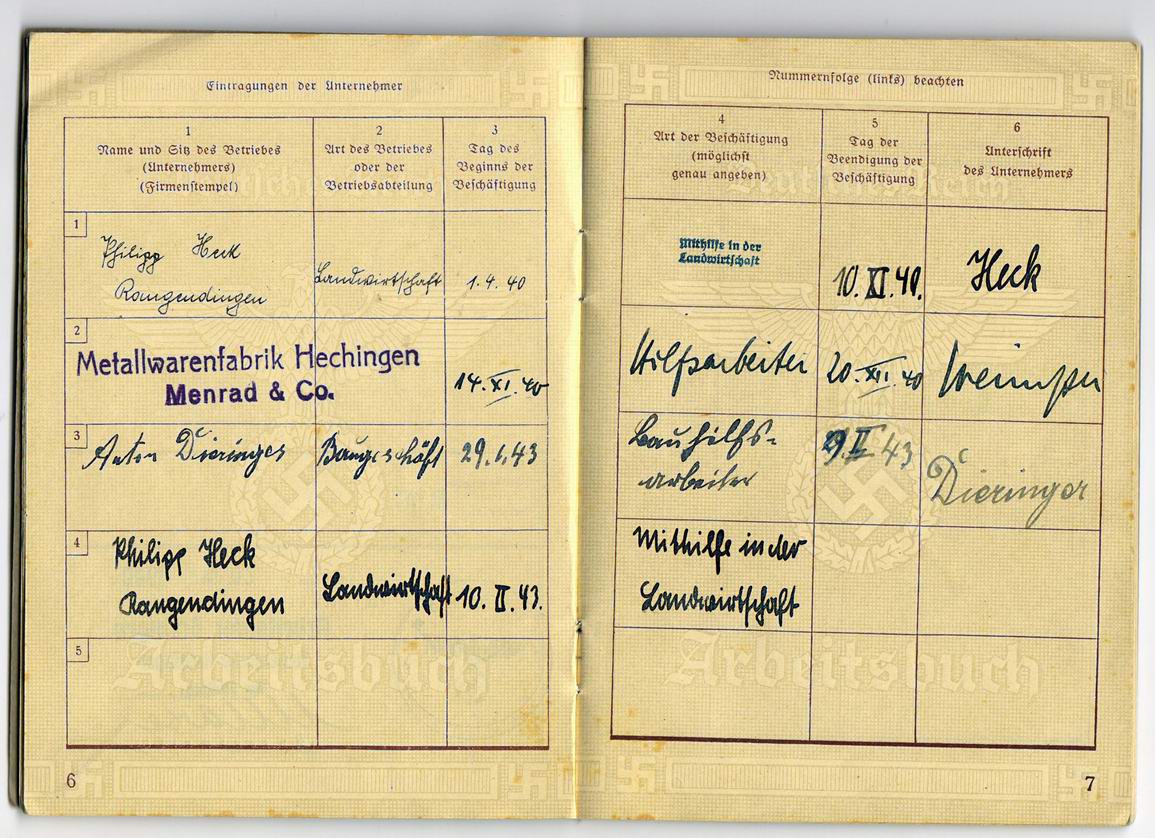 Eintragungen der Unternehmer
1
Name und Sitz des Betriebes
(Unternehmers)
(Firmenstempel)
2
Art des Betriebes
oder der
Betriebsabteilung
3
Tag des
Beginns der
Beschäftigung
1
Philipp Heck
Rangendingen
Landwirtschaft
1.4.40
2
Metallwarenfabrik Hechingen
Menrad & Co.
14.XI.40
3
Anton Dieringer
Baugeschäft
29.1.43
4
Philipp Heck
Rangendingen
Landwirtschaft
10.II.43.
5
Arbeitsbuch
6
Nummernfolge (links) beachten
4
Art der Beschäftigung
(möglichst
genau angeben)
5
Tag der
Beendigung der
Beschäftigung
6
Unterschrift
des Unternehmers
Deutsches Reich
Mithilfe in der
Landwirtschaft
10.XI.40.
Heck
Hilfsarbeiter
20.XII.40
Bauhilfs-
arbeiter
9.II.43
Dieringer
Mithilfe in der
Landwirtschaft
Arbeitsbuch
7